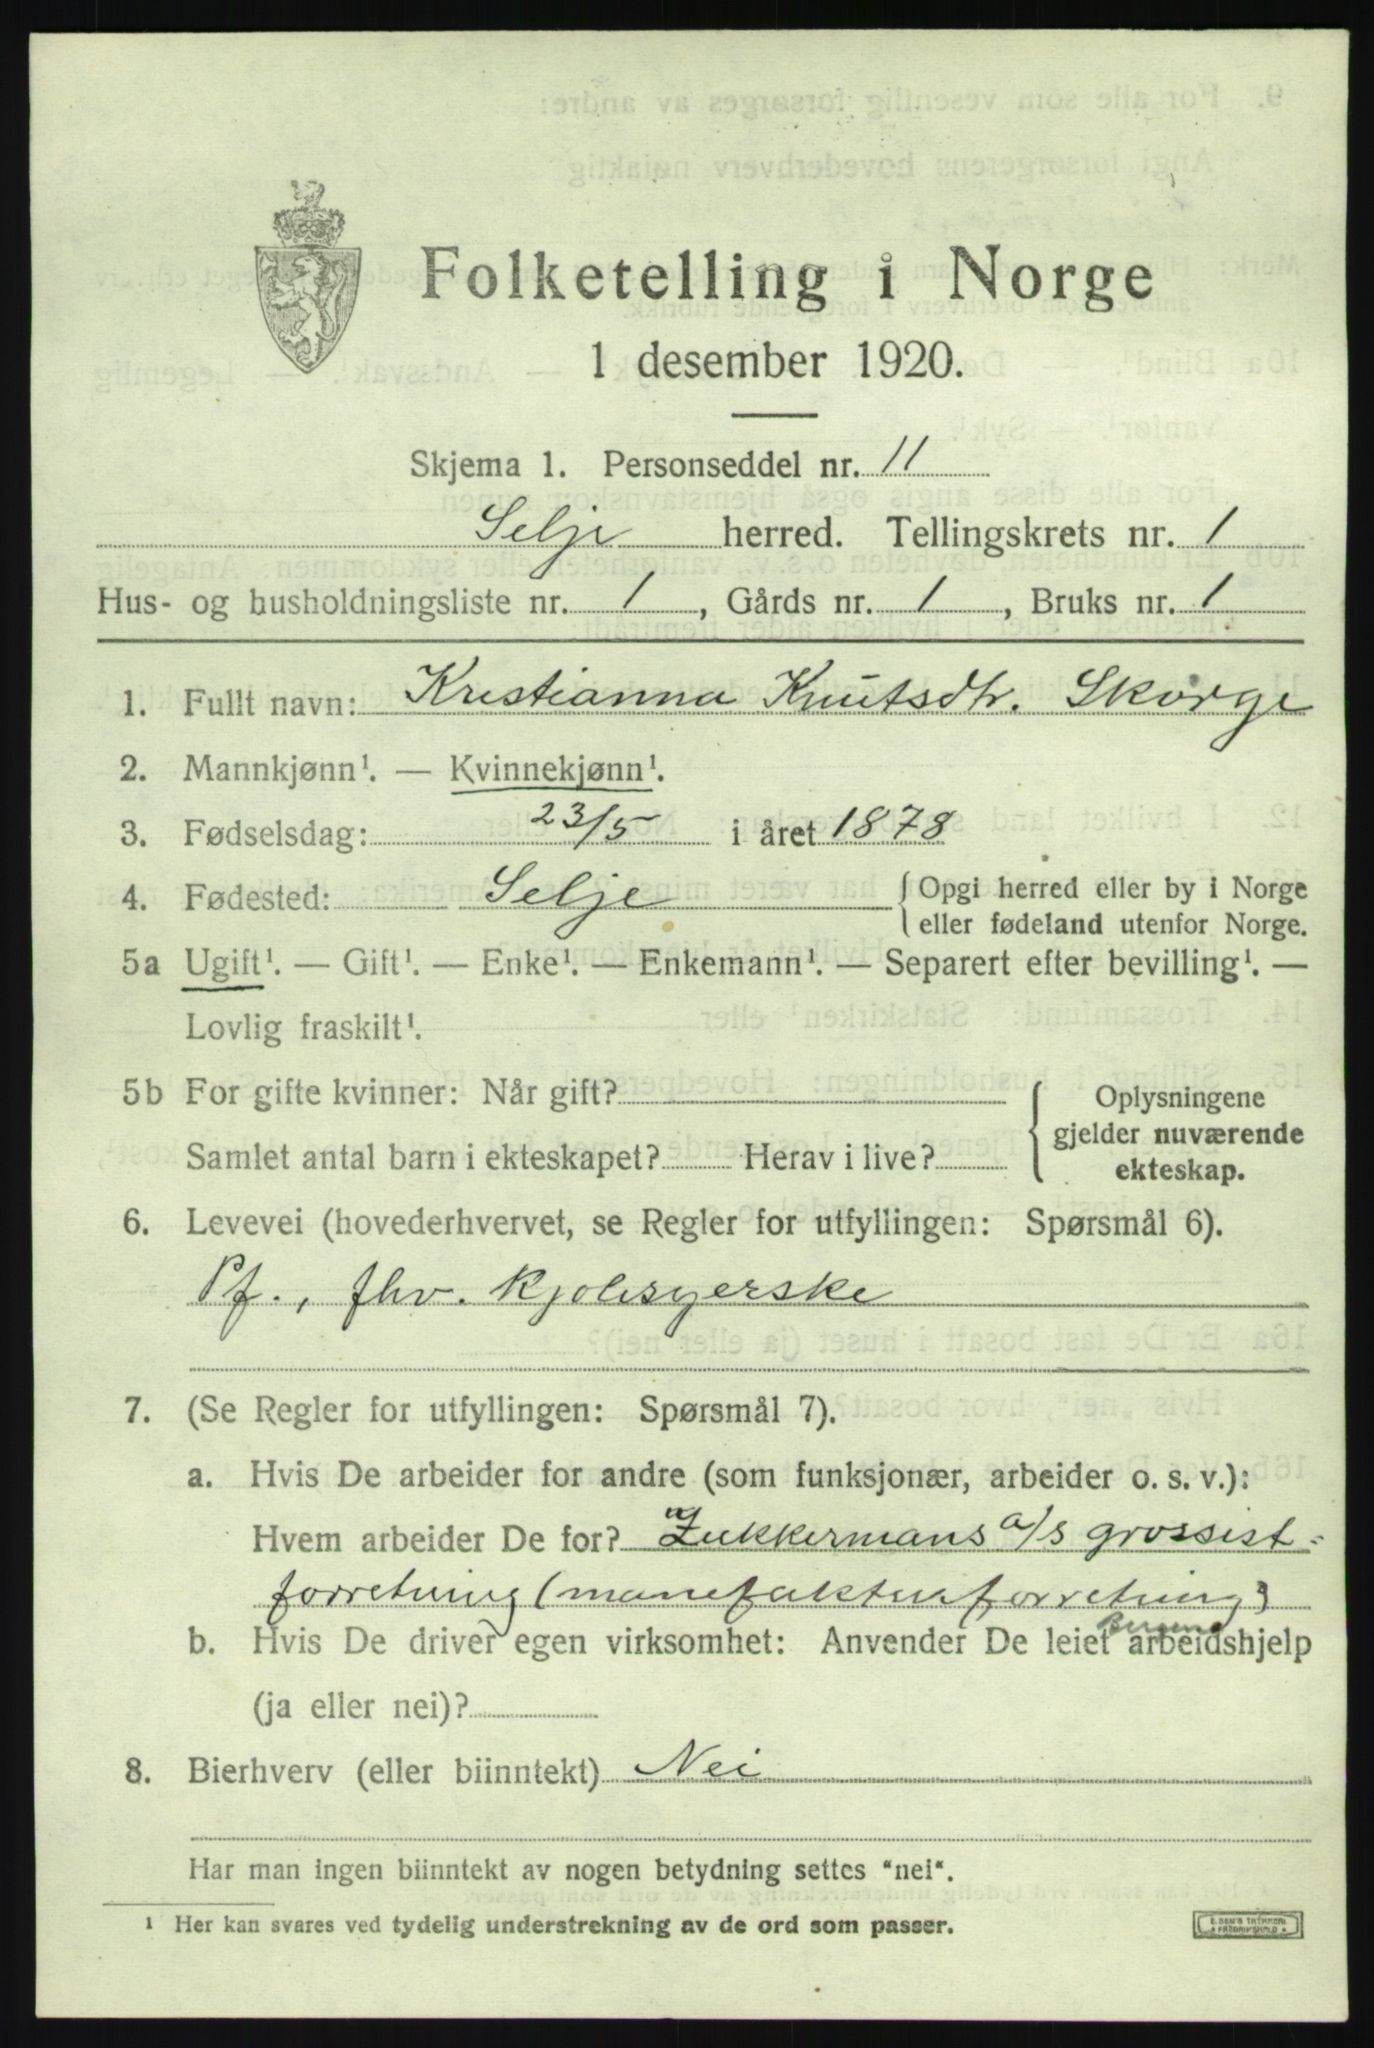 Folketelling i Norge
1 desember 1920.
Skjema 1. Personseddel nr. 11
Selje herred. Tellingskrets nr. 1
Hus- og husholdningsliste nr. 1, Gårds nr. 1, Bruks nr. 1
1. Fullt navn: Kristianna Knutsdtr. Skorge
2. Mannkjønn¹. — Kvinnekjønn¹.
3. Fødselsdag: 23/5 i året 1878
4. Fødested: Selje { Opgi herred eller by i Norge
eller fødeland utenfor Norge.
5a Ugift¹. — Gift¹. — Enke¹. — Enkemann¹. — Separert efter bevilling¹. —
Lovlig fraskilt¹.
5b For gifte kvinner: Når gift?
Samlet antal barn i ekteskapet? Herav i live?
{ Oplysningene
gjelder nuværende
ekteskap.
6. Levevei (hovederhvervet, se Regler for utfyllingen: Spørsmål 6).
Pf., fhv. Kjolesyerske
7. (Se Regler for utfyllingen: Spørsmål 7).
a. Hvis De arbeider for andre (som funksjonær, arbeider o. s. v.):
Hvem arbeider De for? Zukkermans a/s grossist-
forretning (manefakturforretning)
Bergen
b. Hvis De driver egen virksomhet: Anvender De leiet arbeidshjelp
(ja eller nei)?
8. Bierhverv (eller biinntekt) Nei
Har man ingen biinntekt av nogen betydning settes "nei".
¹ Her kan svares ved tydelig understrekning av de ord som passer.